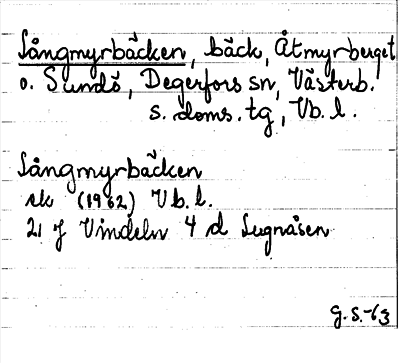 Långmyrbäcken, bäck, Åtmyrberget
o. Sundö, Degerfors sn, Västerb.
s. doms. tg, Vb. l.
Långmyrbäcken
ek (1962) Vb. l.
21 J Vindeln 4 d Lugnåsen
G.S.-63